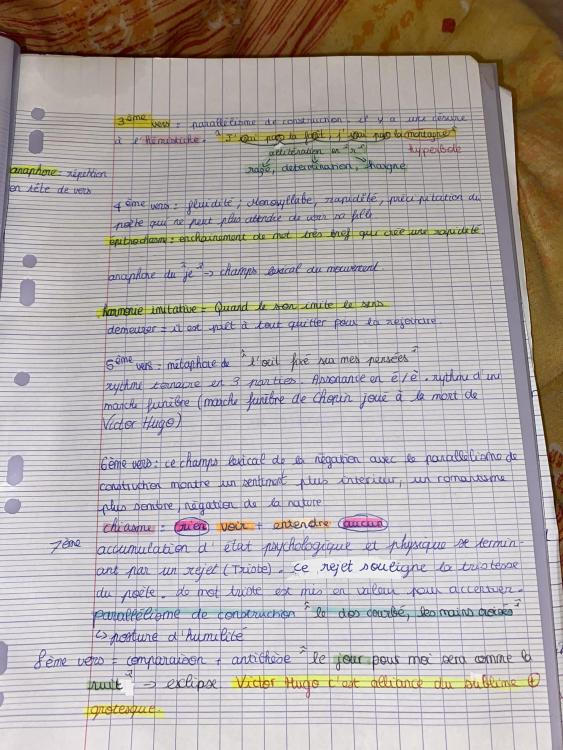 3ème vers = parallélisme de construction. il y a une césure
à l'hémistiche. "J'irai par la forêt, j'irai par la montagne"
allitération en "r" hyperbole
rage, détermination, hargne
anaphore: répétition
en tête de vers
4ème vers: fluidité, monosyllabe, rapidité, précipitation du
poète qui ne peut plus attendre de voir sa fille
épitrochasme: enchainement de mot très bref qui crée une rapidité
anaphore du "je" → champs lexical du mouvement.
harmonie imitative = Quand le son imite le sens
demeurer = il est prêt à tout quitter pour la rejoindre.
5ème vers: métaphore de "l'œil fixé sur mes pensées"
rythme ternaire en 3 parties. Assonance en é/è. rythme d'un
marche funèbre (marche funèbre de Chopin joué à la mort de
Victor Hugo)
6ème vers: ce champs lexical de la négation avec le parallélisme de
construction montre un sentiment plus intérieur, un romantisme
plus sombre, négation de la nature
chiasme: rien voir + entendre aucun
7ème accumulation d'état psychologique et physique se termin-
ant par un rejet (Triste). ce rejet souligne la tristesse
du poète. Le mot triste est mis en valeur pour accentuer.
parallélisme de construction "le dos courbé, les mains croisés"
↳ posture d'humilité
8ème vers = comparaison + antithèse "le jour pour moi sera comme la
nuit" → eclipse Victor Hugo c'est alliance du sublime ⊕
grotesque.